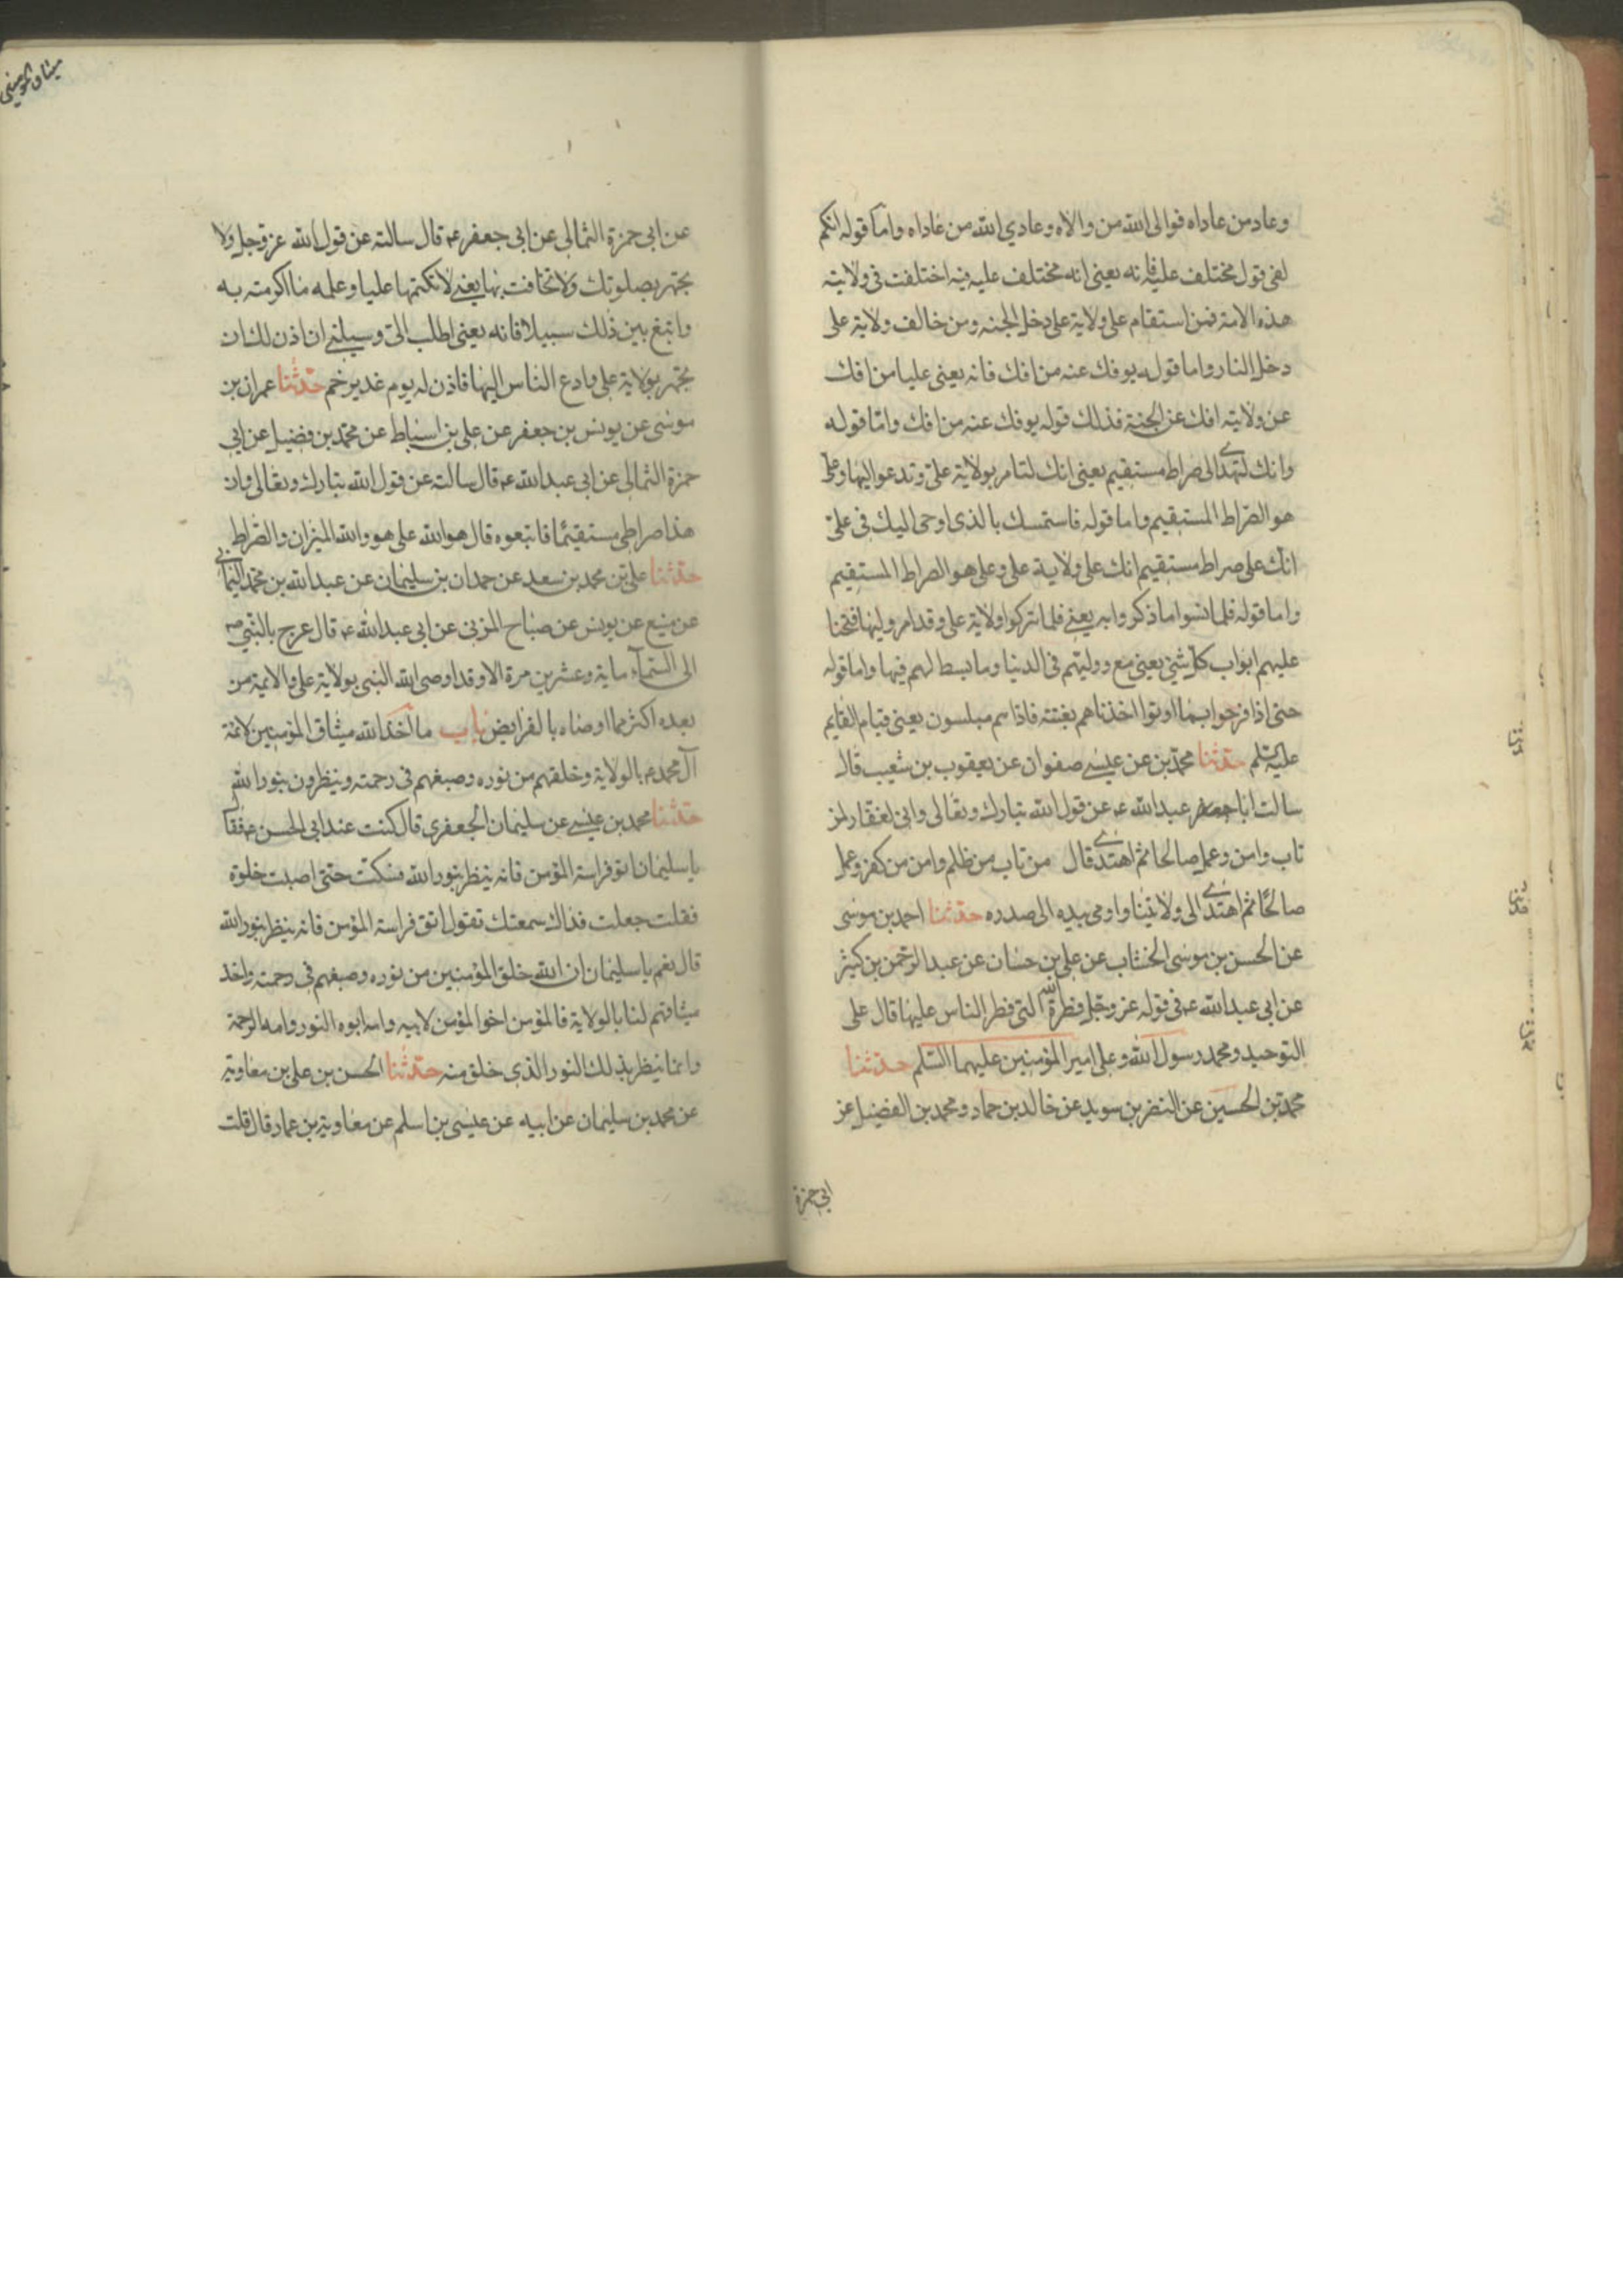 وعاد من عاداه فوالى الله من والاه وعادي الله من عاداه واما قوله انكم
لفي قول مختلف عليه فانه يعني انه مختلف عليه فيه اختلفت في ولايته
هذه الامة فمن استقام على ولاية على دخل الجنه ومن خالف ولاية على
دخل النار واما قوله يوفك عنه من افك فانه يعنى عليا من افك
عن ولايته افك عن الجنة فذلك قوله يوفك عنه من افك واما قوله
وانك لتهدى الى صراط مستقيم يعنى انك لتامر بولاية على وتدعو اليها وعلى
هو الصراط المستقيم واما قوله فاستمسك بالذى اوحى اليك في على
انك على صراط مستقيم انك على ولاية على وعلى هو الصراط المستقيم
واما قوله فلما نسوا ما ذكروا به يعنى فلما تركوا ولاية على وقد امروا بها فتحنا
عليهم ابواب كل شئ يعنى مع دولتهم في الدنيا وما بسط لهم فيها واما قوله
حتى اذا فرحوا بما اوتوا اخذناهم بغتته فاذا هم مبلسون يعنى قيام القايم
عليه السلم حدثنا محمد بن عن عيسى صفوان عن يعقوب بن شعيب قال
سالت ابا عبد الله ع عن قول الله تبارك وتعالى وانى لغفار لمن
تاب وامن وعمل صالحا ثم اهتدى قال من تاب من ظلم وامن من كفر وعمل
صالحا ثم اهتدى الى ولايتنا واومى بيده الى صدره حدثنا احمد بن موسى
عن الحسن بن موسى الخشاب عن على بن حسان عن عبد الرحمن بن كثير
عن ابى عبد الله ع في قوله عز وجل فطرة الله التى فطر الناس عليها قال على
التوحيد ومحمد رسول الله وعلى امير المؤمنين عليهما السلم حدثنا
محمد بن الحسين عن النضر بن سويد عن خالد بن حماد ومحمد بن الفضيل عن
ابى حمزة
ميثاق المومنين
عن ابى حمزة الثمالى عن ابى جعفر ع قال سالته عن قول الله عز وجل ولا
تجهر بصلوتك ولا تخافت بها يعنى لا تكتمها عليا وعلمه ما اكرمته به
وابتغ بين ذلك سبيلا فانه يعنى اطلب الى وسيلنى ان اذن لك ان
تجهر بولاية على وادع الناس اليها فاذن له يوم غدير خم حدثنا عمران بن
موسى عن يونس بن جعفر عن على بن اسباط عن محمد بن فضيل عن ابى
حمزة الثمالى عن ابى عبد الله ع قال سالته عن قول الله تبارك وتعالى وان
هذا صراطى مستقيما فاتبعوه قال هو والله على هو والله الميزان والصراط
حدثنا على بن محمد بن سعد عن حمدان بن سليمان عن عبد الله بن محمد اليمانى
عن منيع عن يونس عن صباح المزنى عن ابى عبد الله ع قال عرج بالنبى ص
الى السمآء ماية وعشرين مرة الا وقد اوصى الله النبى بولاية على والائمة من
بعده اكثر مما اوصاه بالفرايض باب ما اخذ الله ميثاق المؤمنين لائمة
آل محمد ع بالولاية وخلقهم من نوره وصبغهم في رحمته وينظرون بنور الله
حدثنا محمد بن عيسى عن سليمان الجعفرى قال كنت عند ابى الحسن ع فقال
يا سليمان اتق فراسة المؤمن فانه ينظر بنور الله فسكت حتى اصبت خلوة
فقلت جعلت فداك سمعتك تقول اتق فراسة المؤمن فانه ينظر بنور الله
قال نعم يا سليمان ان الله خلق المؤمنين من نوره وصبغهم في رحمته واخذ
ميثاقهم لنا بالولاية فالمؤمن اخو المؤمن لابيه وامه ابوه النور وامه الرحمة
وانما ينظر بذلك النور الذى خلق منه حدثنا الحسن بن على بن معاوية
عن محمد بن سليمان عن ابيه عن عيسى بن اسلم عن معاوية بن عمار قال قلت